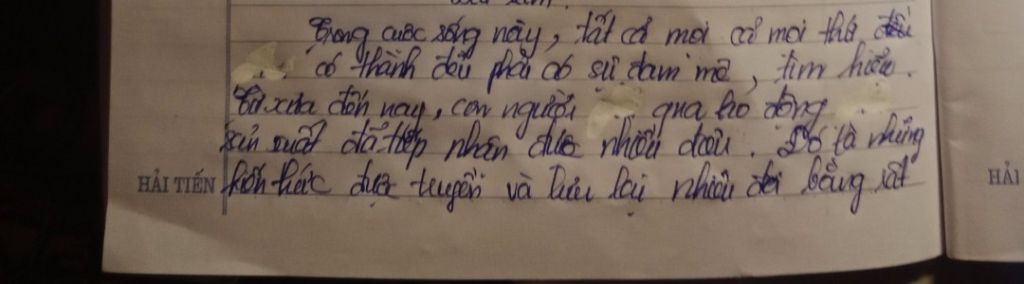 Trong cuộc sống này, tất cả mọi cả mọi thứ đều
có thành đều phải có sự đam mê, tìm hiểu.
Từ xưa đến nay, con người qua
sản xuất đã tiếp nhận được nhiều điều. Đó là những
HẢI TIẾN kiến thức được truyền và lưu lại nhiều đời bằng rất
HẢI